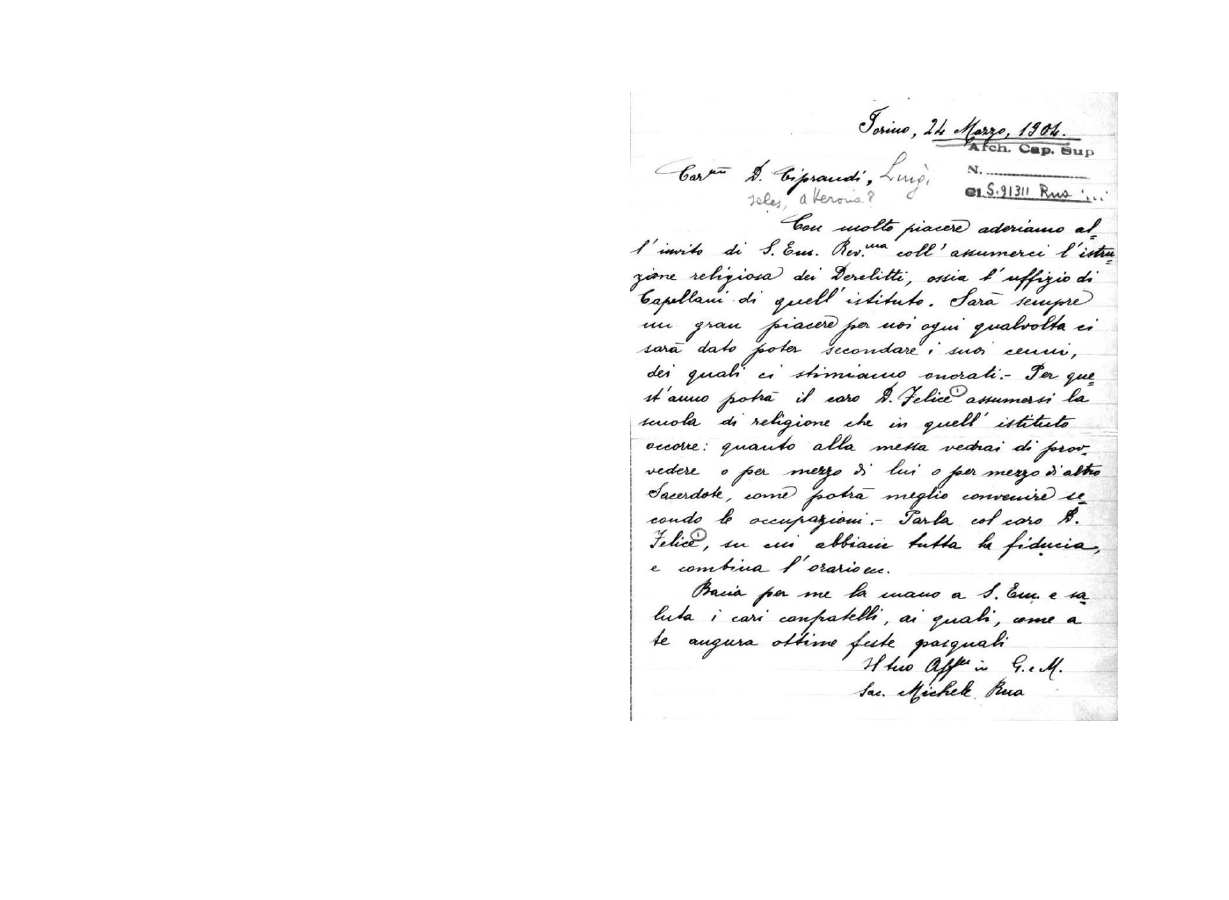 Torino, 24 Marzo, 1904.
Arch. Cap. Sup
N.
Cl. S.91311 Rua
Car.mo D. Ciprandi, Luigi,
sales, a Verona?
Con molto piacere aderiamo al-
l'invito di S. Em. Rev.ma coll'assumerci l'istru-
zione religiosa dei Derelitti, ossia l'uffizio di
Capellani di quell'istituto. Sarà sempre
un gran piacere per noi ogni qualvolta ci
sarà dato poter secondare i suoi cenni,
dei quali ci stimiamo onorati.- Per que-
st'anno potrà il caro D. Felice (1) assumersi la
scuola di religione che in quell'istituto
occorre: quanto alla messa vedrai di prov-
vedere o per mezzo di lui o per mezzo di altro
Sacerdote, come potrà meglio convenire se-
condo le occupazioni.- Parla col caro D.
Felice (1), su cui abbiam tutta la fiducia,
e combina l'orario ec.
Bacia per me la mano a S. Em. e sa-
luta i cari confratelli, ai quali, come a
te augura ottime feste pasquali
Il tuo Aff.mo in G. e M.
Sac. Michele Rua